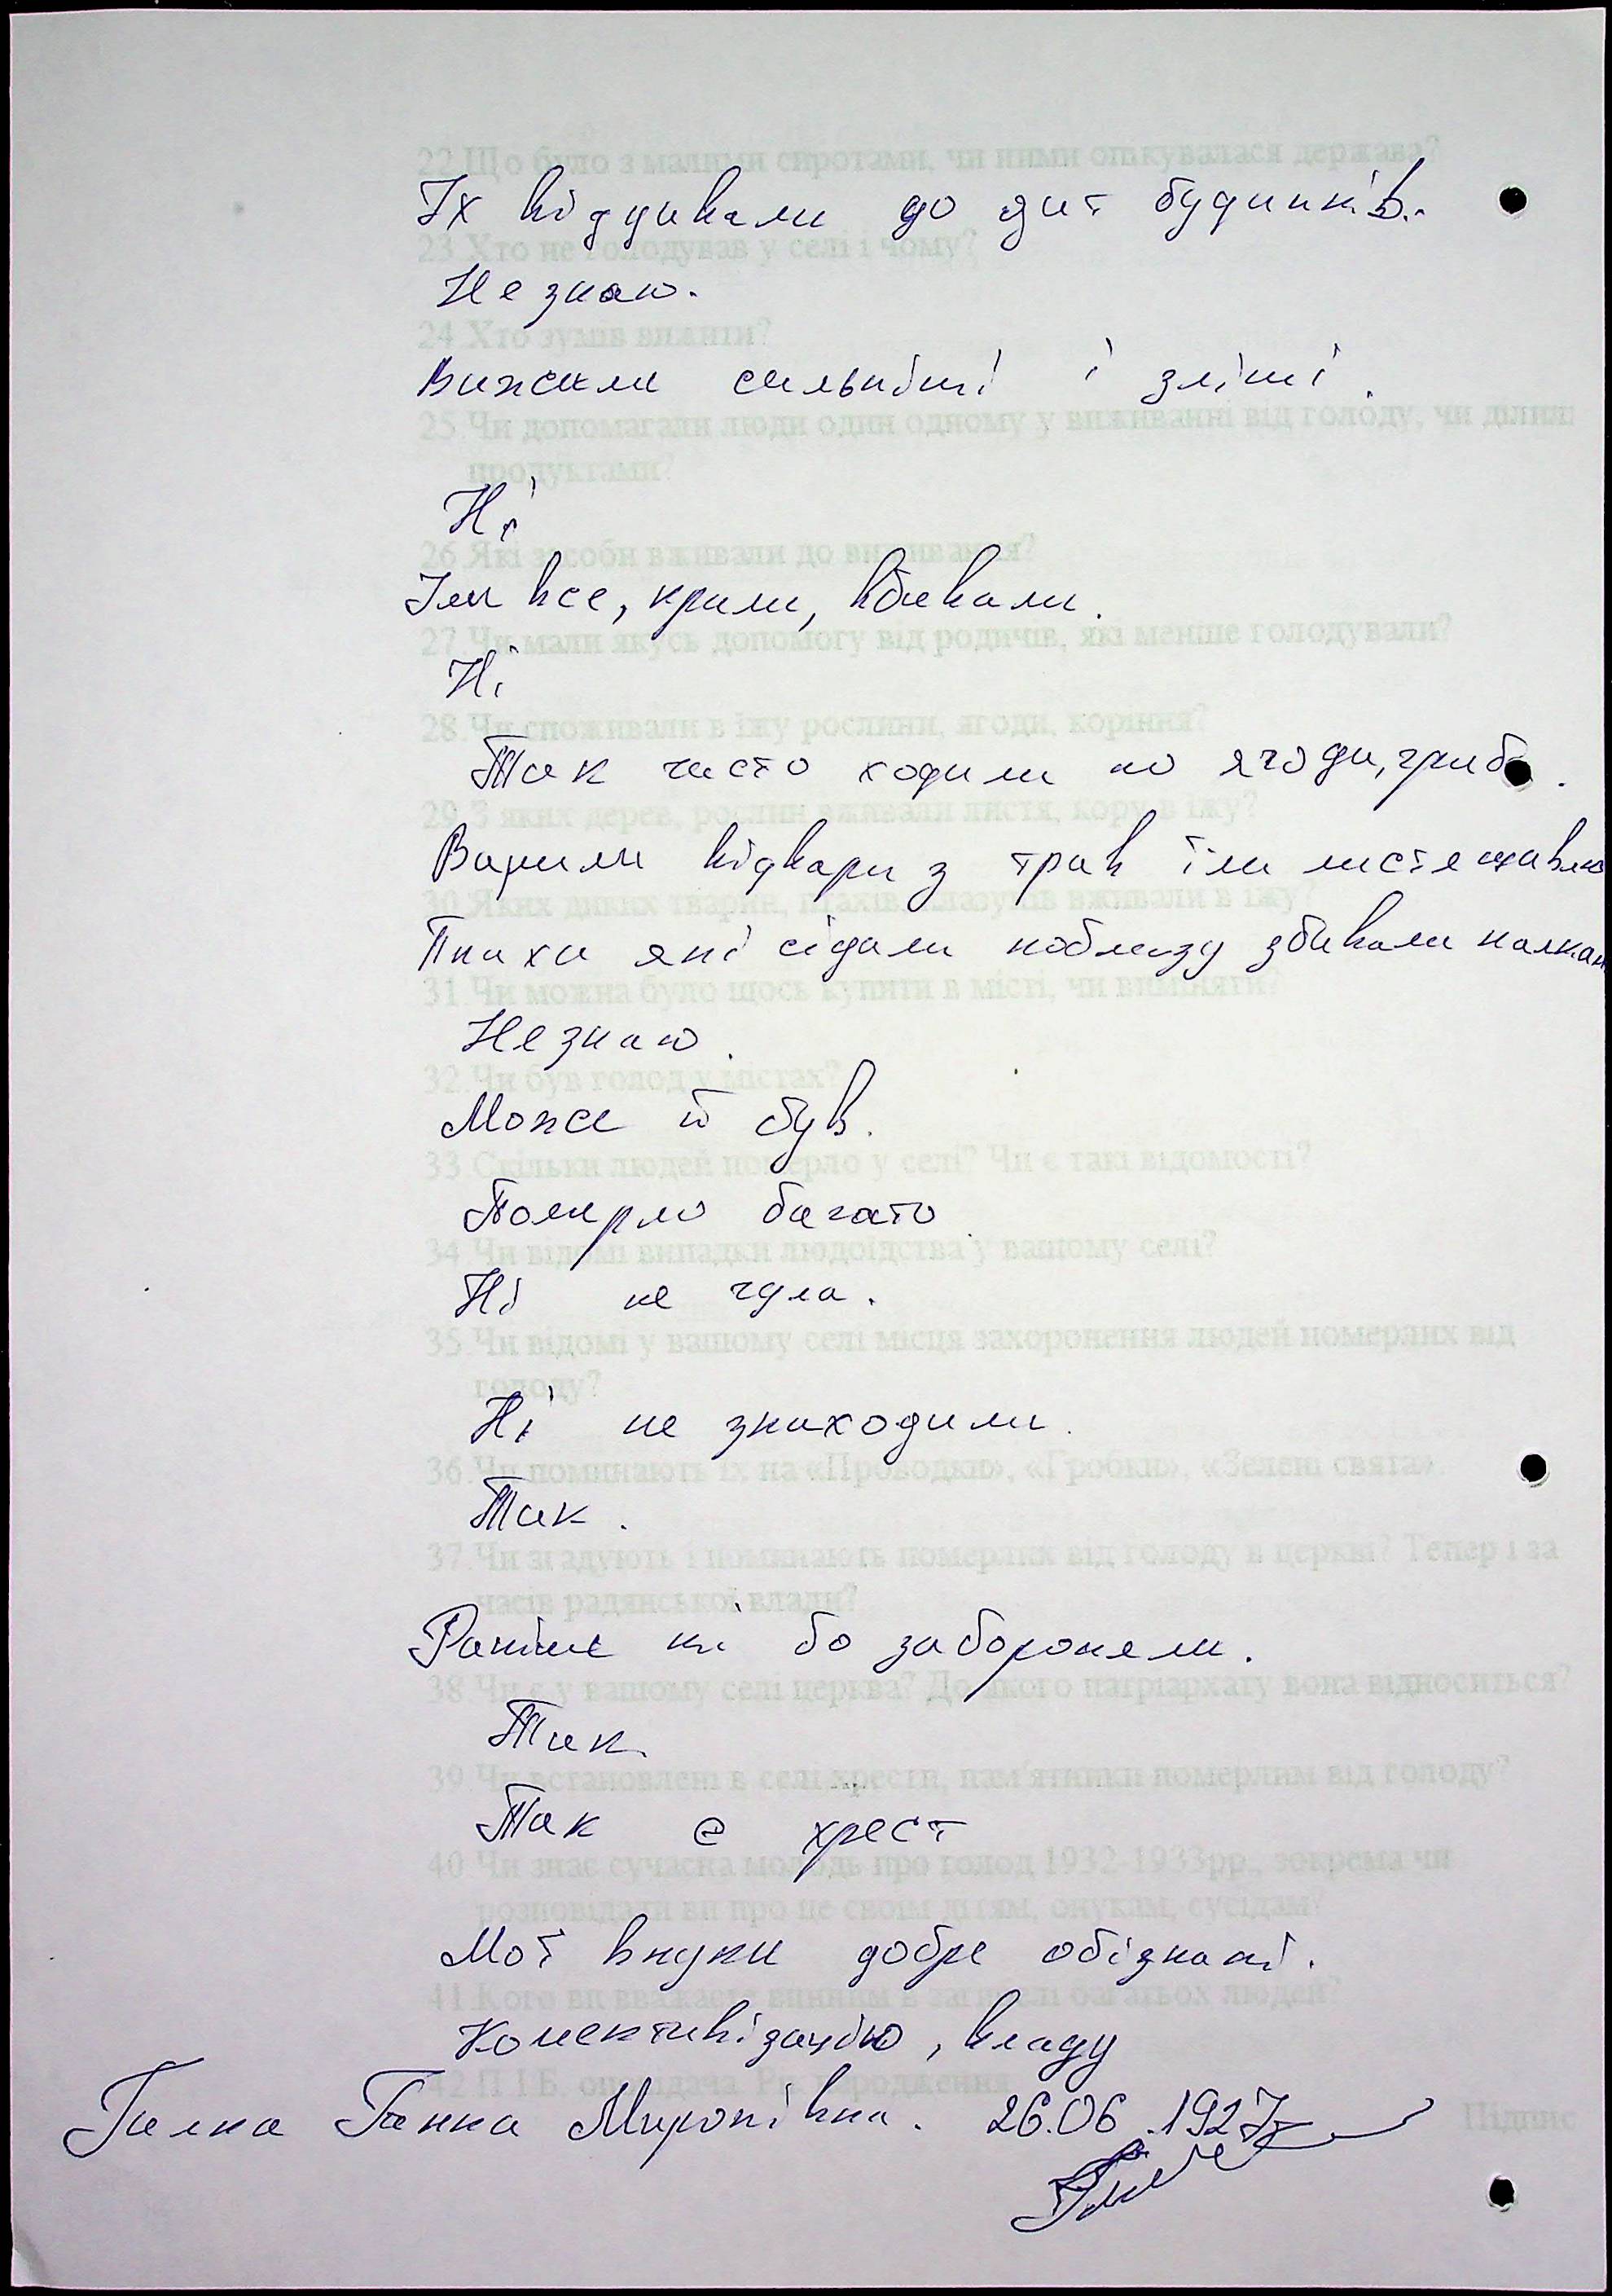 22.Що було з малими сиротами, чи ними опікувалася держава?
Їх віддивали до дит будинків.
23.Хто не голодував у селі і чому?
Не знаю.
24.Хто зумів вижити?
Вижили сильніші і зліші.
25.Чи допомагали люди один одному у виживанні від голоду, чи ділили
продуктами?
Ні
26.Які засоби вживали до виживання?
Їли все, крали, вбивали.
27.Чи мали якусь допомогу від родичів, які менше голодували?
Ні
28.Чи споживали в їжу рослини, ягоди, коріння?
Так часто ходили по ягоди, гриби.
29.З яких дерев, рослин вживали листя, кору в їжу?
Варили відвари з трав їли листя щавлю
30.Яких диких тварин, птахів, плазунів вживали в їжу?
Птахи які сідали поблизу збивали палкам
31.Чи можна було щось купити в місті, чи виміняти?
Не знаю.
32.Чи був голод у містах?
Може й був.
33.Скільки людей померло у селі? Чи є такі відомості?
Померло багато.
34.Чи відомі випадки людоїдства у вашому селі?
Ні не чула.
35.Чи відомі у вашому селі місця захоронення людей померлих від
голоду?
Ні не знаходили.
36.Чи поминають їх на «Проводки», «Гробки», «Зелені свята»
Так.
37.Чи згадують і поминають померлих від голоду в церкві? Тепер і за
часів радянської влади?
Раніше ні бо забороняли.
38.Чи є у вашому селі церква? До якого патріархату вона відноситься?
Так.
39.Чи встановлені в селі хрести, пам'ятники померлим від голоду?
Так є хрест
40.Чи знає сучасна молодь про голод 1932-1933рр., зокрема чи
розповідали ви про це своїм дітям, онукам, сусідам?
Мої внуки добре обізнані.
41.Кого ви вважаєте винним в загибелі багатьох людей?
Колективізацію, владу
42.П.І.Б. оповідача. Рік народження
Підпис
Галка Ганна Миронівна. 26.06.1927